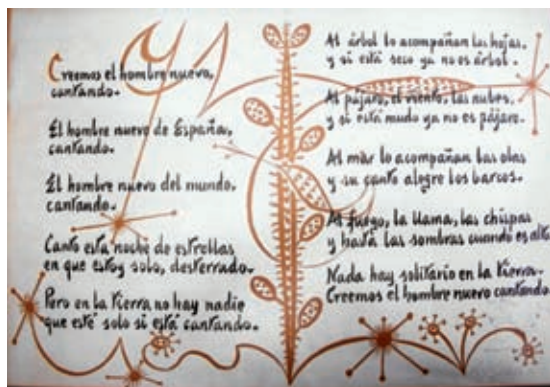 Creemos el hombre nuevo,
cantando.
El hombre nuevo de España,
cantando.
El hombre nuevo del mundo.
cantando.
Canto esta noche de estrellas
en que estoy solo, desterrado.
Pero en la tierra no hay nadie
que esté solo si está cantando.
Al árbol lo acompañan las hojas,
y si está seco ya no es árbol.
Al pájaro, el viento, las nubes,
y si está mudo ya no es pájaro.
Al mar lo acompañan las olas
y su canto alegre los barcos.
Al fuego, la llama, las chispas
y hasta las sombras cuando es alto
Nada hay solitario en la tierra.
Creemos el hombre nuevo cantando.